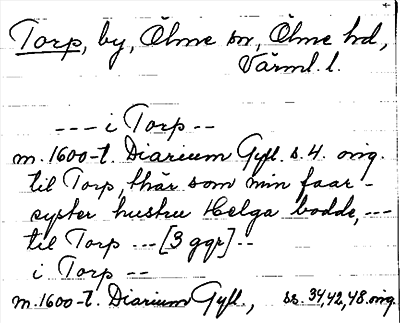 Torp, by, Ölme sn, Ölme hd,
Värml. l.
--- i Torp --
m. 1600-t. Diarium Gyll. s. 4. orig.
til Torp, thär som min faar-
syster hustru Helga bodde, ---
til Torp --- [3 ggr] --
i Torp --
m. 1600-t. Diarium Gyll., ss. 34, 42, 48. orig.